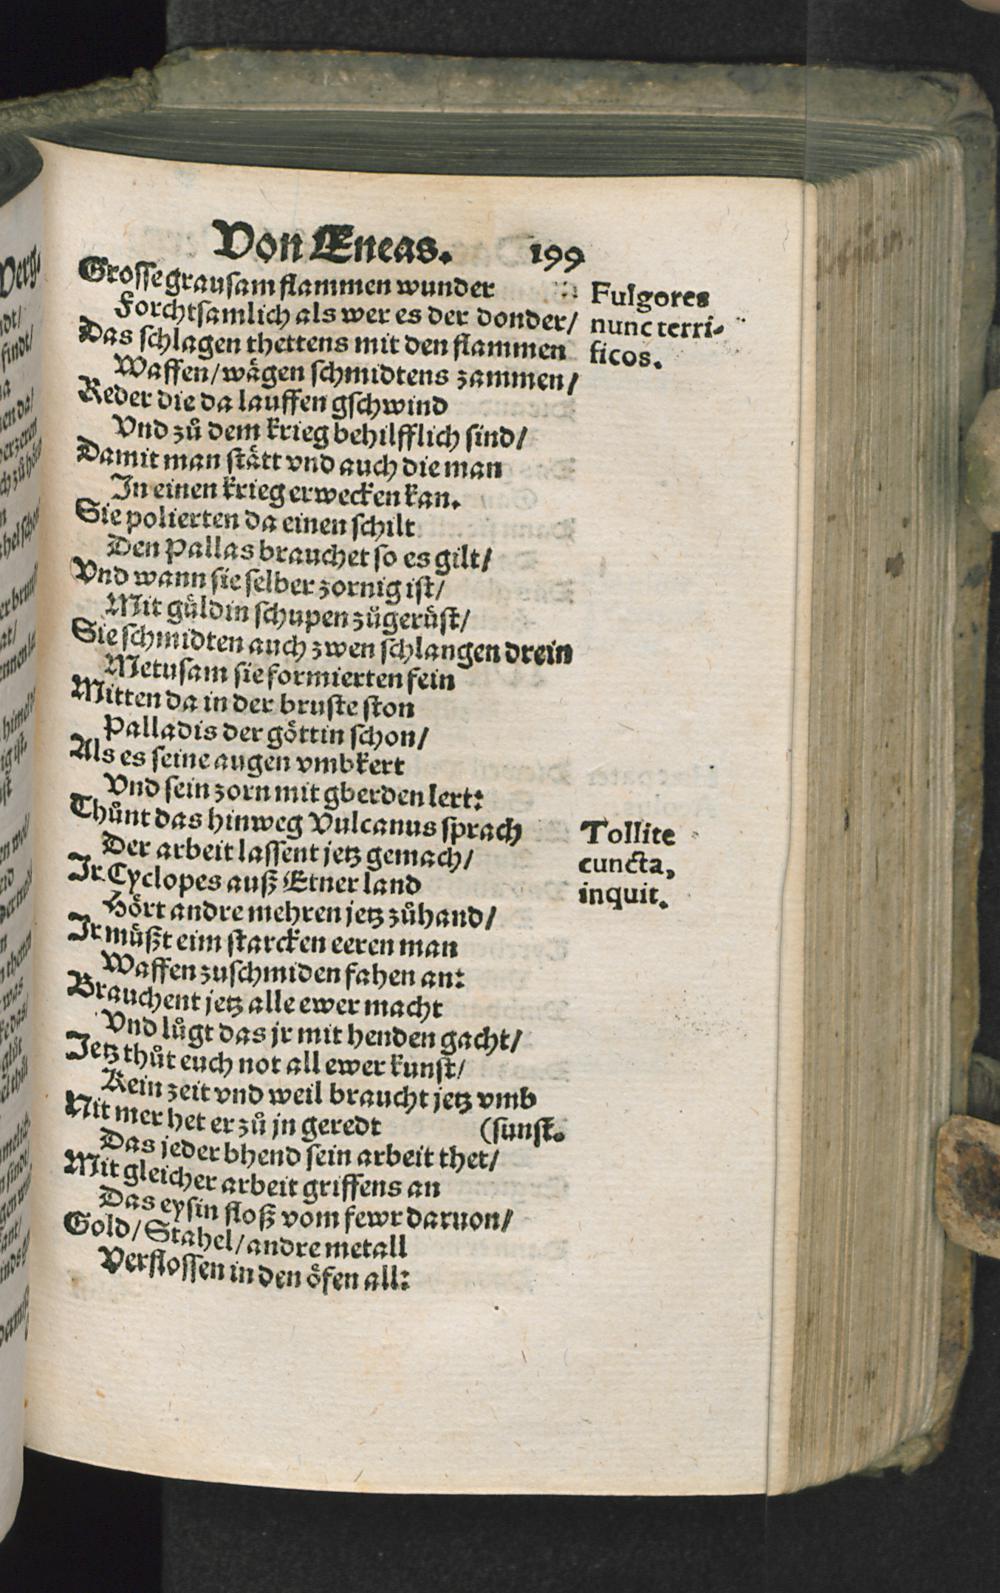 Von Æneas. 199
Grosse grausam flammen wunder
Forchtsamlich als wer es der donder/
Das schlagen thettens mit den flammen
Waffen/wägen schmidtens zammen/
Reder die da lauffen gschwind
Vnd zů dem krieg behilfflich sind/
Damit man stätt vnd auch die man
In einen krieg erwecken kan.
Sie polierten da einen schilt
Den Pallas brauchet so es gilt/
Vnd wann sie selber zornig ist/
Mit güldin schupen zůgerüst/
Sie schmidten auch zwen schlangen drein
Metusam sie formierten fein
Mitten da in der bruste ston
Palladis der göttin schon/
Als es seine augen vmbkert
Vnd sein zorn mit gberden lert:
Thůnt das hinweg Vulcanus sprach
Der arbeit lassent jetz gemach/
Ir Cyclopes auß Etner land
Hört andre mehren jetz zůhand/
Ir müßt eim starcken eeren man
Waffen zuschmiden fahen an:
Brauchent jetz alle ewer macht
Vnd lůgt das jr mit henden gacht/
Jetz thůt euch not all ewer kunst/
Kein zeit vnd weil braucht jetz vmb
Nit mer het er zů jn geredt (sunst.
Das jeder bhend sein arbeit thet/
Mit gleicher arbeit griffens an
Das eysin floß vom fewr daruon/
Gold/Stahel/andre metall
Verflossen in den öfen all:
Fulgores
nunc terri-
ficos.
Tollite
cuncta,
inquit.